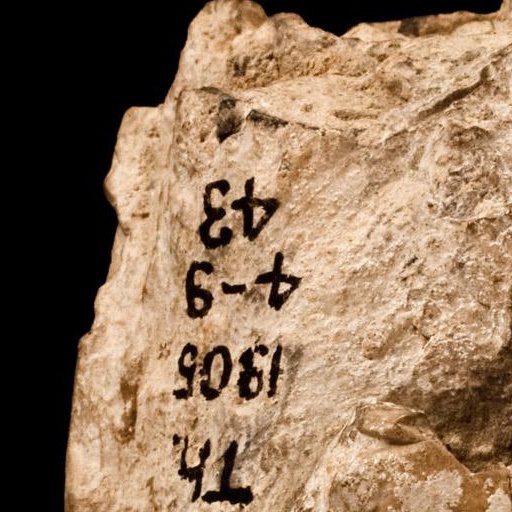 Th
1905
4-9
43